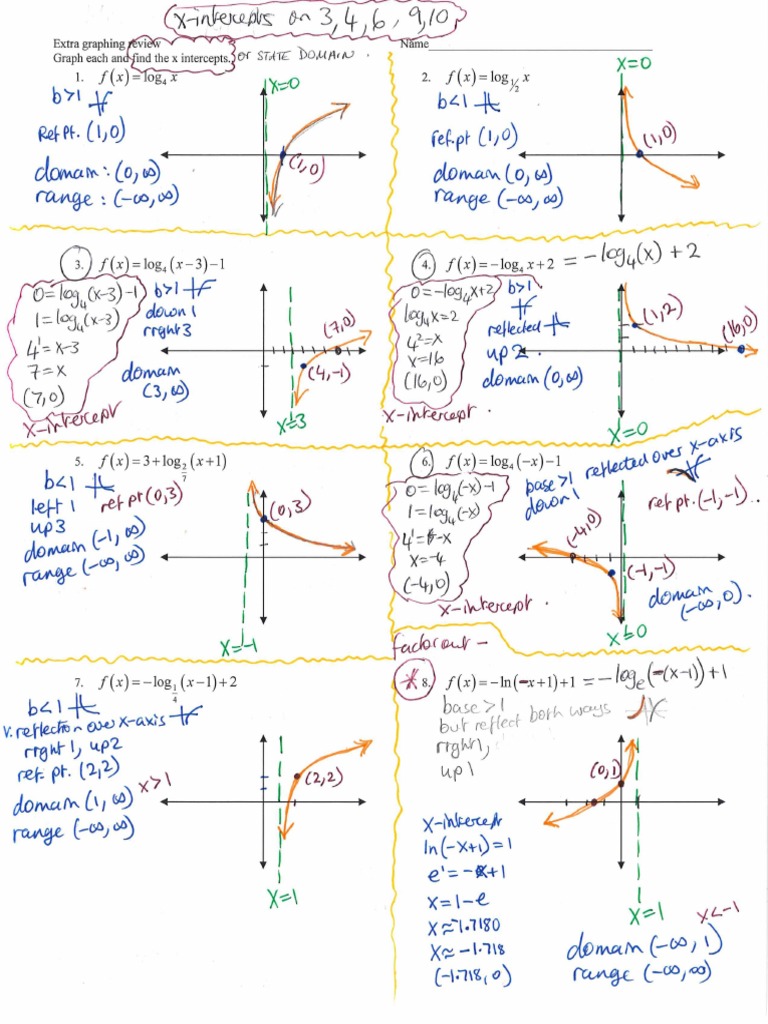 x-intercepts on 3,4,6,9,10
Extra graphing review
Name
Graph each and find the x intercepts. or STATE DOMAIN.
1. f(x)=log₄ x
b>1
Ref Pt. (1,0)
domain: (0,∞)
range: (-∞,∞)
x=0
(1,0)
2. f(x)=log_{1/2} x
b<1
ref.pt (1,0)
domain (0,∞)
range (-∞,∞)
x=0
(1,0)
3. f(x)=log₄(x-3)-1
0=log₄(x-3)-1
1=log₄(x-3)
4¹=x-3
7=x
(7,0)
x-intercept
b>1
down 1
rright3
domain
(3,∞)
(7,0)
(4,-1)
x=3
4. f(x)=-log₄ x+2 = -log₄(x)+2
0=-log₄x+2
log₄x=2
4²=x
x=16
(16,0)
x-intercept.
b>1
reflected
up 2.
domain (0,∞)
(1,2)
(16,0)
x=0
5. f(x)=3+log_{2/7}(x+1)
b<1
left 1 ref pt (0,3)
up3
domain (-1,∞)
range (-∞,∞)
(0,3)
x=-1
6. f(x)=log₄(-x)-1
0=log₄(-x)-1
1=log₄(-x)
4¹=-x
x=-4
(-4,0)
x-intercept.
base>1 reflected over x-axis
down 1
ref pt. (-1,-1).
(-4,0)
(-1,-1)
domain
(-∞,0).
x=0
factor out -
7. f(x)=-log_{1/4}(x-1)+2
b<1
v. reflection over x-axis
rright 1, up2
ref. pt. (2,2)
domain (1,∞) x>1
range (-∞,∞)
(2,2)
x=1
* 8. f(x)=-ln(-x+1)+1 = -logₑ(-(x-1))+1
base>1
but reflect both ways
rright 1,
up 1
(0,1)
x-intercept
ln(-x+1)=1
e¹=-x+1
x=1-e
x≈-1.7180
x≈-1.718
(-1.718,0)
x=1
x<-1
domain (-∞,1)
range (-∞,∞)